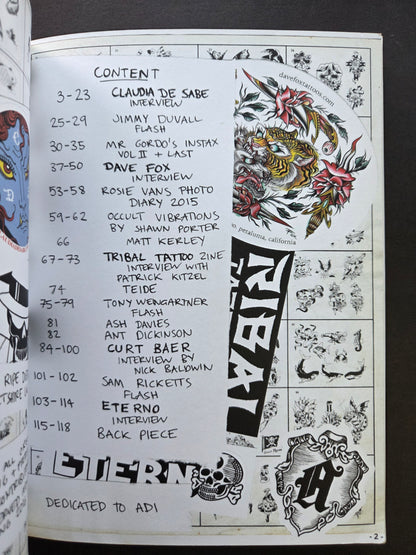 CONTENT
3-23 CLAUDIA DE SABE
INTERVIEW
25-29 JIMMY DUVALL
FLASH
30-35 MR GORDO'S INSTAX
VOL II + LAST
37-50 DAVE FOX
INTERVIEW
53-58 ROSIE VANS PHOTO
DIARY 2015
59-62 OCCULT VIBRATIONS
BY SHAWN PORTER
66 MATT KERLEY
67-73 TRIBAL TATTOO ZINE
INTERVIEW WITH
PATRICK KITZEL
74 TEIDE
75-79 TONY WEINGARTNER
FLASH
81 ASH DAVIES
82 ANT DICKINSON
84-100 CURT BAER
INTERVIEW BY
NICK BALDWIN
101-102 SAM RICKETTS
FLASH
103-114 ETERNO
INTERVIEW
115-118 BACK PIECE
ETERN
DEDICATED TO ADI
davefoxtattoos.com
petaluma, california
RIBAL
A
- 2 -